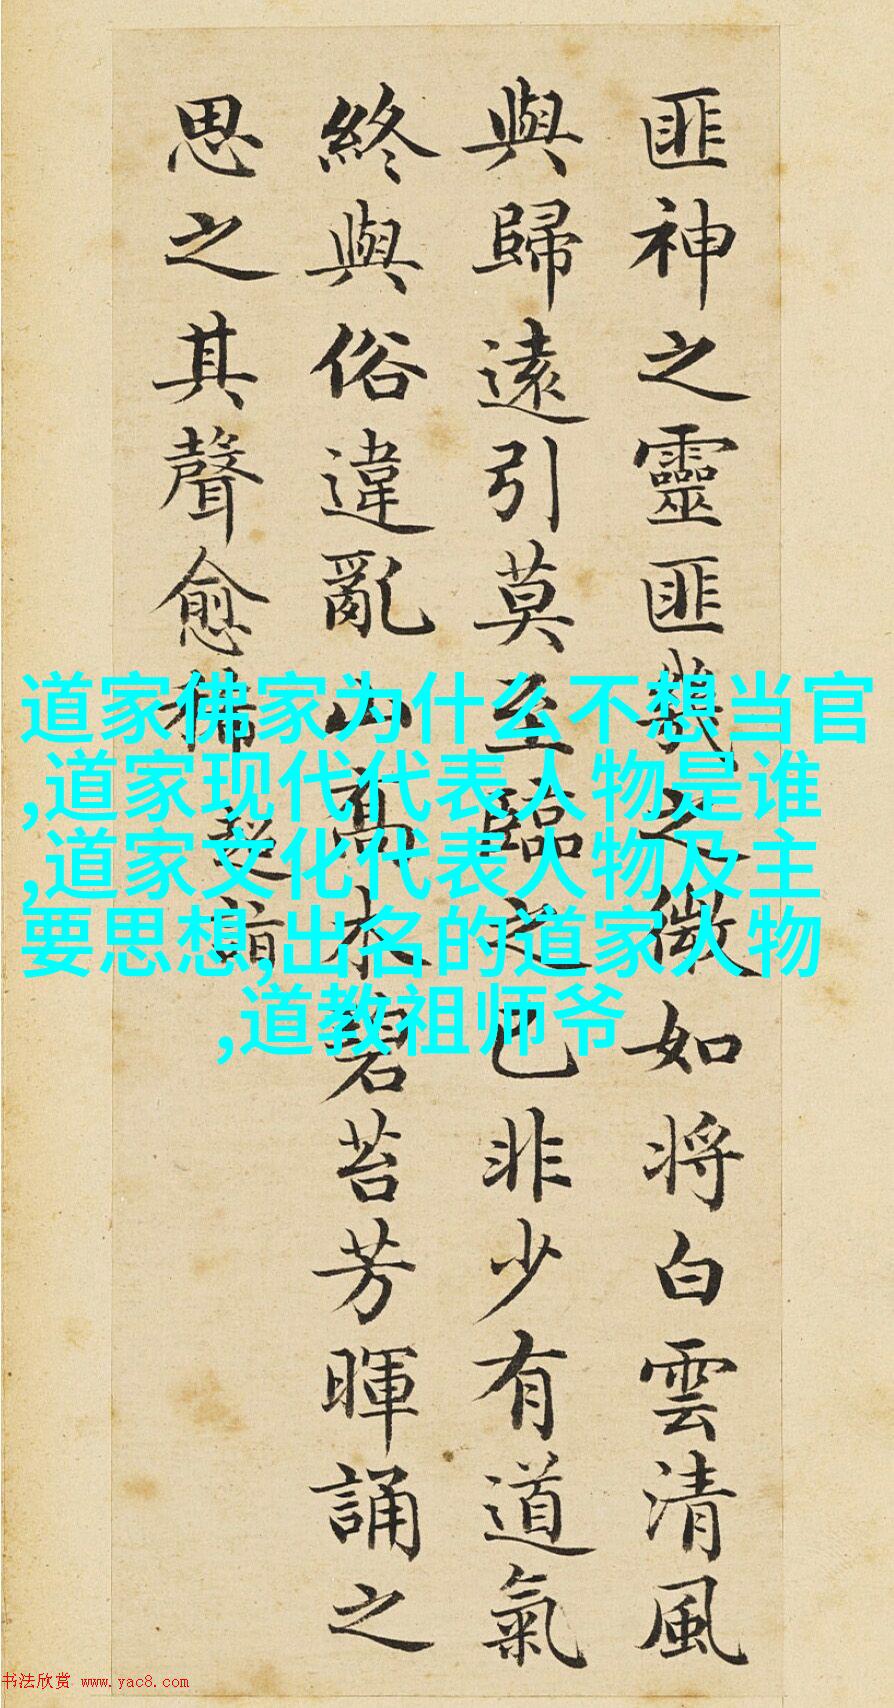 匪神之靈匪幾之微如將白雲清風
與歸遠引莫至臨之已非少有道氣
終與俗違亂山高木碧苔芳暉誦之
思之其聲愈稀
超詣
道家佛家为什么不想当官
,道家现代代表人物是谁
,道家文化代表人物及主
要思想,出名的道家人物
,道教祖师爷
书法欣赏 www.yac8.com